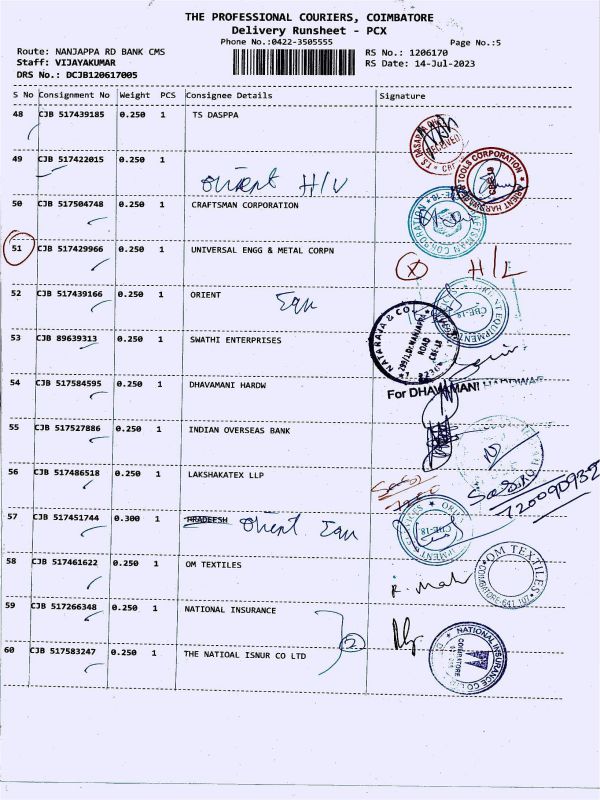 THE PROFESSIONAL COURIERS, COIMBATORE
Delivery Runsheet - PCX
Phone No.:0422-3505555 Page No.:5
Route: NANJAPPA RD BANK CMS RS No.: 1206170
Staff: VIJAYAKUMAR RS Date: 14-Jul-2023
DRS No.: DCJB120617005
S No Consignment No Weight PCS Consignee Details Signature
48 CJB 517439185 0.250 1 TS DASPPA
RECEIVED
49 CJB 517422015 0.250 1
Orient H/W
TOOLS CORPORATION
50 CJB 517504748 0.250 1 CRAFTSMAN CORPORATION
51 CJB 517429966 0.250 1 UNIVERSAL ENGG & METAL CORPN
X H/L
52 CJB 517439166 0.250 1 ORIENT Equ
ORIENT EQUIPMENT
CBE-18
53 CJB 89639313 0.250 1 SWATHI ENTERPRISES
NATARAJA & CO.
ROAD
CBE-18
54 CJB 517584595 0.250 1 DHAVAMANI HARDW
For DHAVAMANI HARDWAR
55 CJB 517527886 0.250 1 INDIAN OVERSEAS BANK
56 CJB 517486518 0.250 1 LAKSHAKATEX LLP
720090932
57 CJB 517451744 0.300 1 PRADEESH Orient Equ
CBE-18
58 CJB 517461622 0.250 1 OM TEXTILES
OM TEXTILES
COIMBATORE-641 107
59 CJB 517266348 0.250 1 NATIONAL INSURANCE
2
60 CJB 517583247 0.250 1 THE NATIOAL ISNUR CO LTD
NATIONAL INSURANCE CO LTD
COIMBATORE